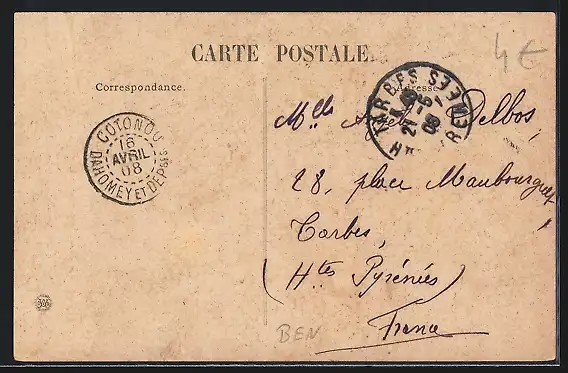 CARTE POSTALE.
4€
Correspondance.
Adresse
COTONOU
16
AVRIL
08
DAHOMEY ET DEP
TARBES
21
08
Hes PYRENEES
Melle Delbos,
28, place Maubourguet
Tarbes,
(Htes Pyrénées)
France
BEN